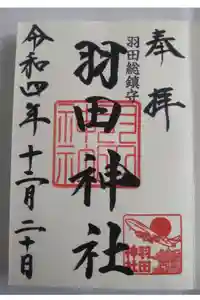 奉拝
羽田総鎮守
羽田神社
令和四年十二月二十日
羽田神社
羽田神社